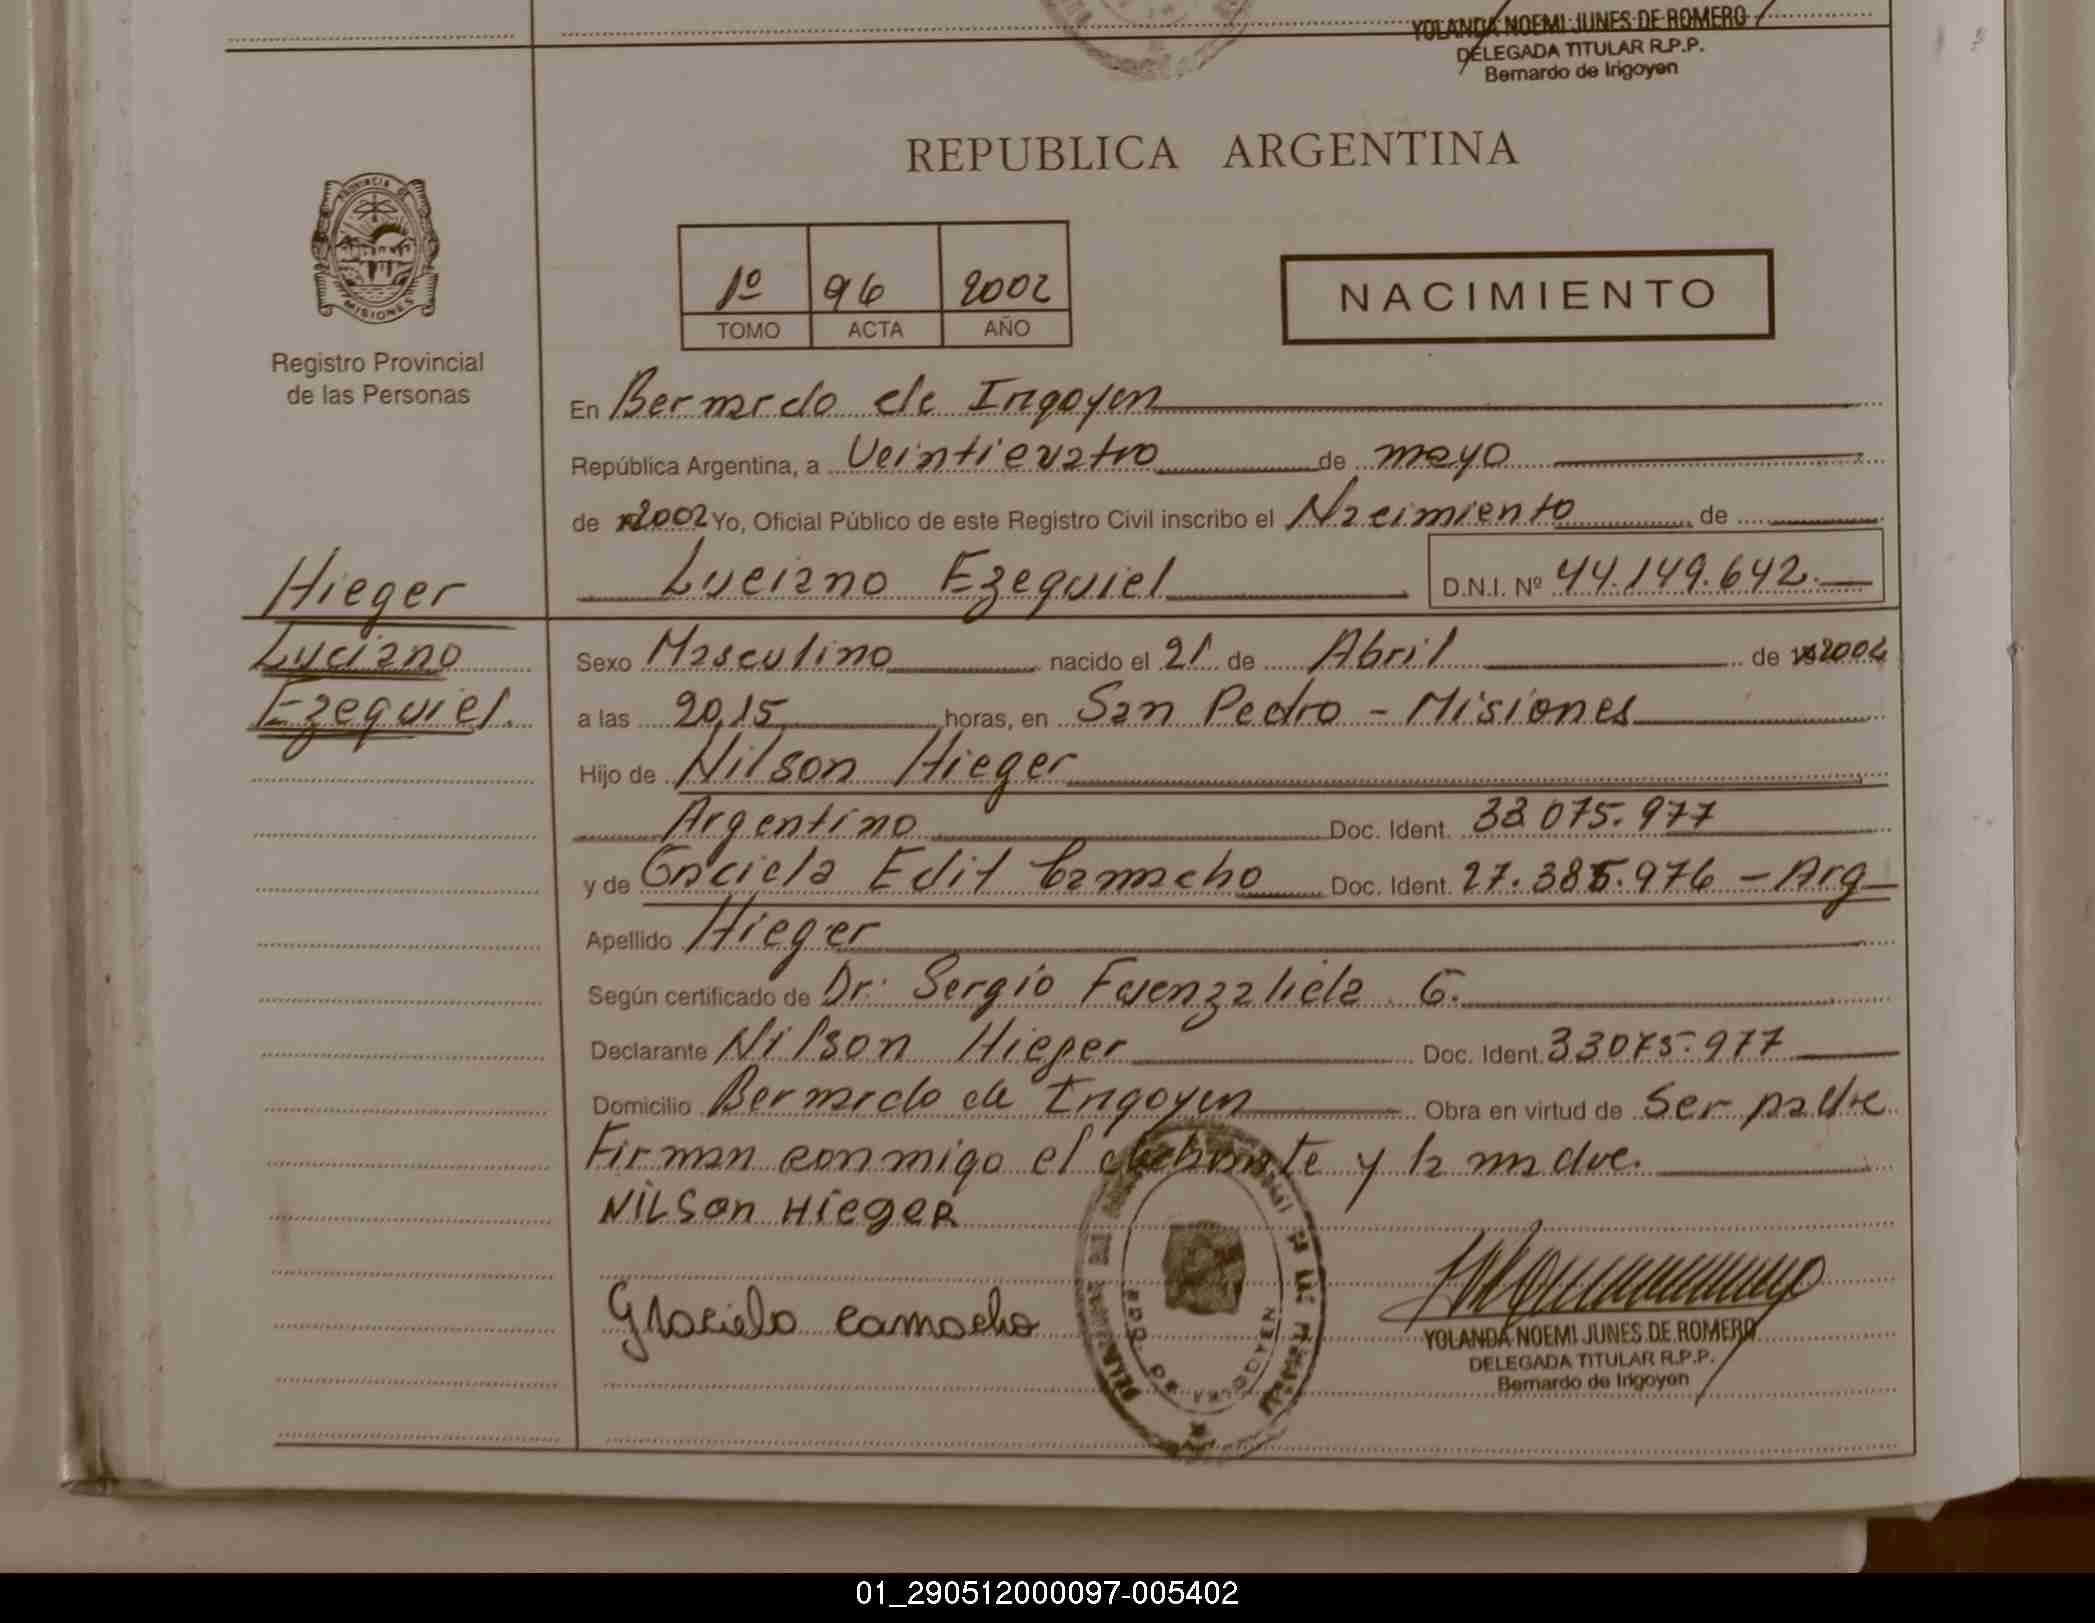 YOLANDA NOEMI JUNES DE ROMERO
DELEGADA TITULAR R.P.P.
Bernardo de Irigoyen
REPUBLICA ARGENTINA
PROVINCIA DE
MISIONES
Registro Provincial
de las Personas
1º 96 2002
TOMO ACTA AÑO
NACIMIENTO
En Bernardo de Irigoyen
República Argentina, a Veinticuatro de mayo
de 2002 Yo, Oficial Público de este Registro Civil inscribo el Nacimiento de
Luciano Ezequiel D.N.I. Nº 44.149.642.
Hieger
Luciano
Ezequiel.
Sexo Masculino nacido el 21 de Abril de 2002
a las 20,15 horas, en San Pedro - Misiones
Hijo de Nilson Hieger
Argentino Doc. Ident. 33.075.977
y de Graciela Edit Camacho Doc. Ident. 27.385.976 - Arg
Apellido Hieger
Según certificado de Dr. Sergio Fuenzalida G.
Declarante Nilson Hieger Doc. Ident. 33075.977
Domicilio Bernardo de Irigoyen Obra en virtud de Ser padre
Firman conmigo el declarante y la madre.
NILSON HIEGER
Graciela Camacho
YOLANDA NOEMI JUNES DE ROMERO
DELEGADA TITULAR R.P.P.
Bernardo de Irigoyen
01_290512000097-005402